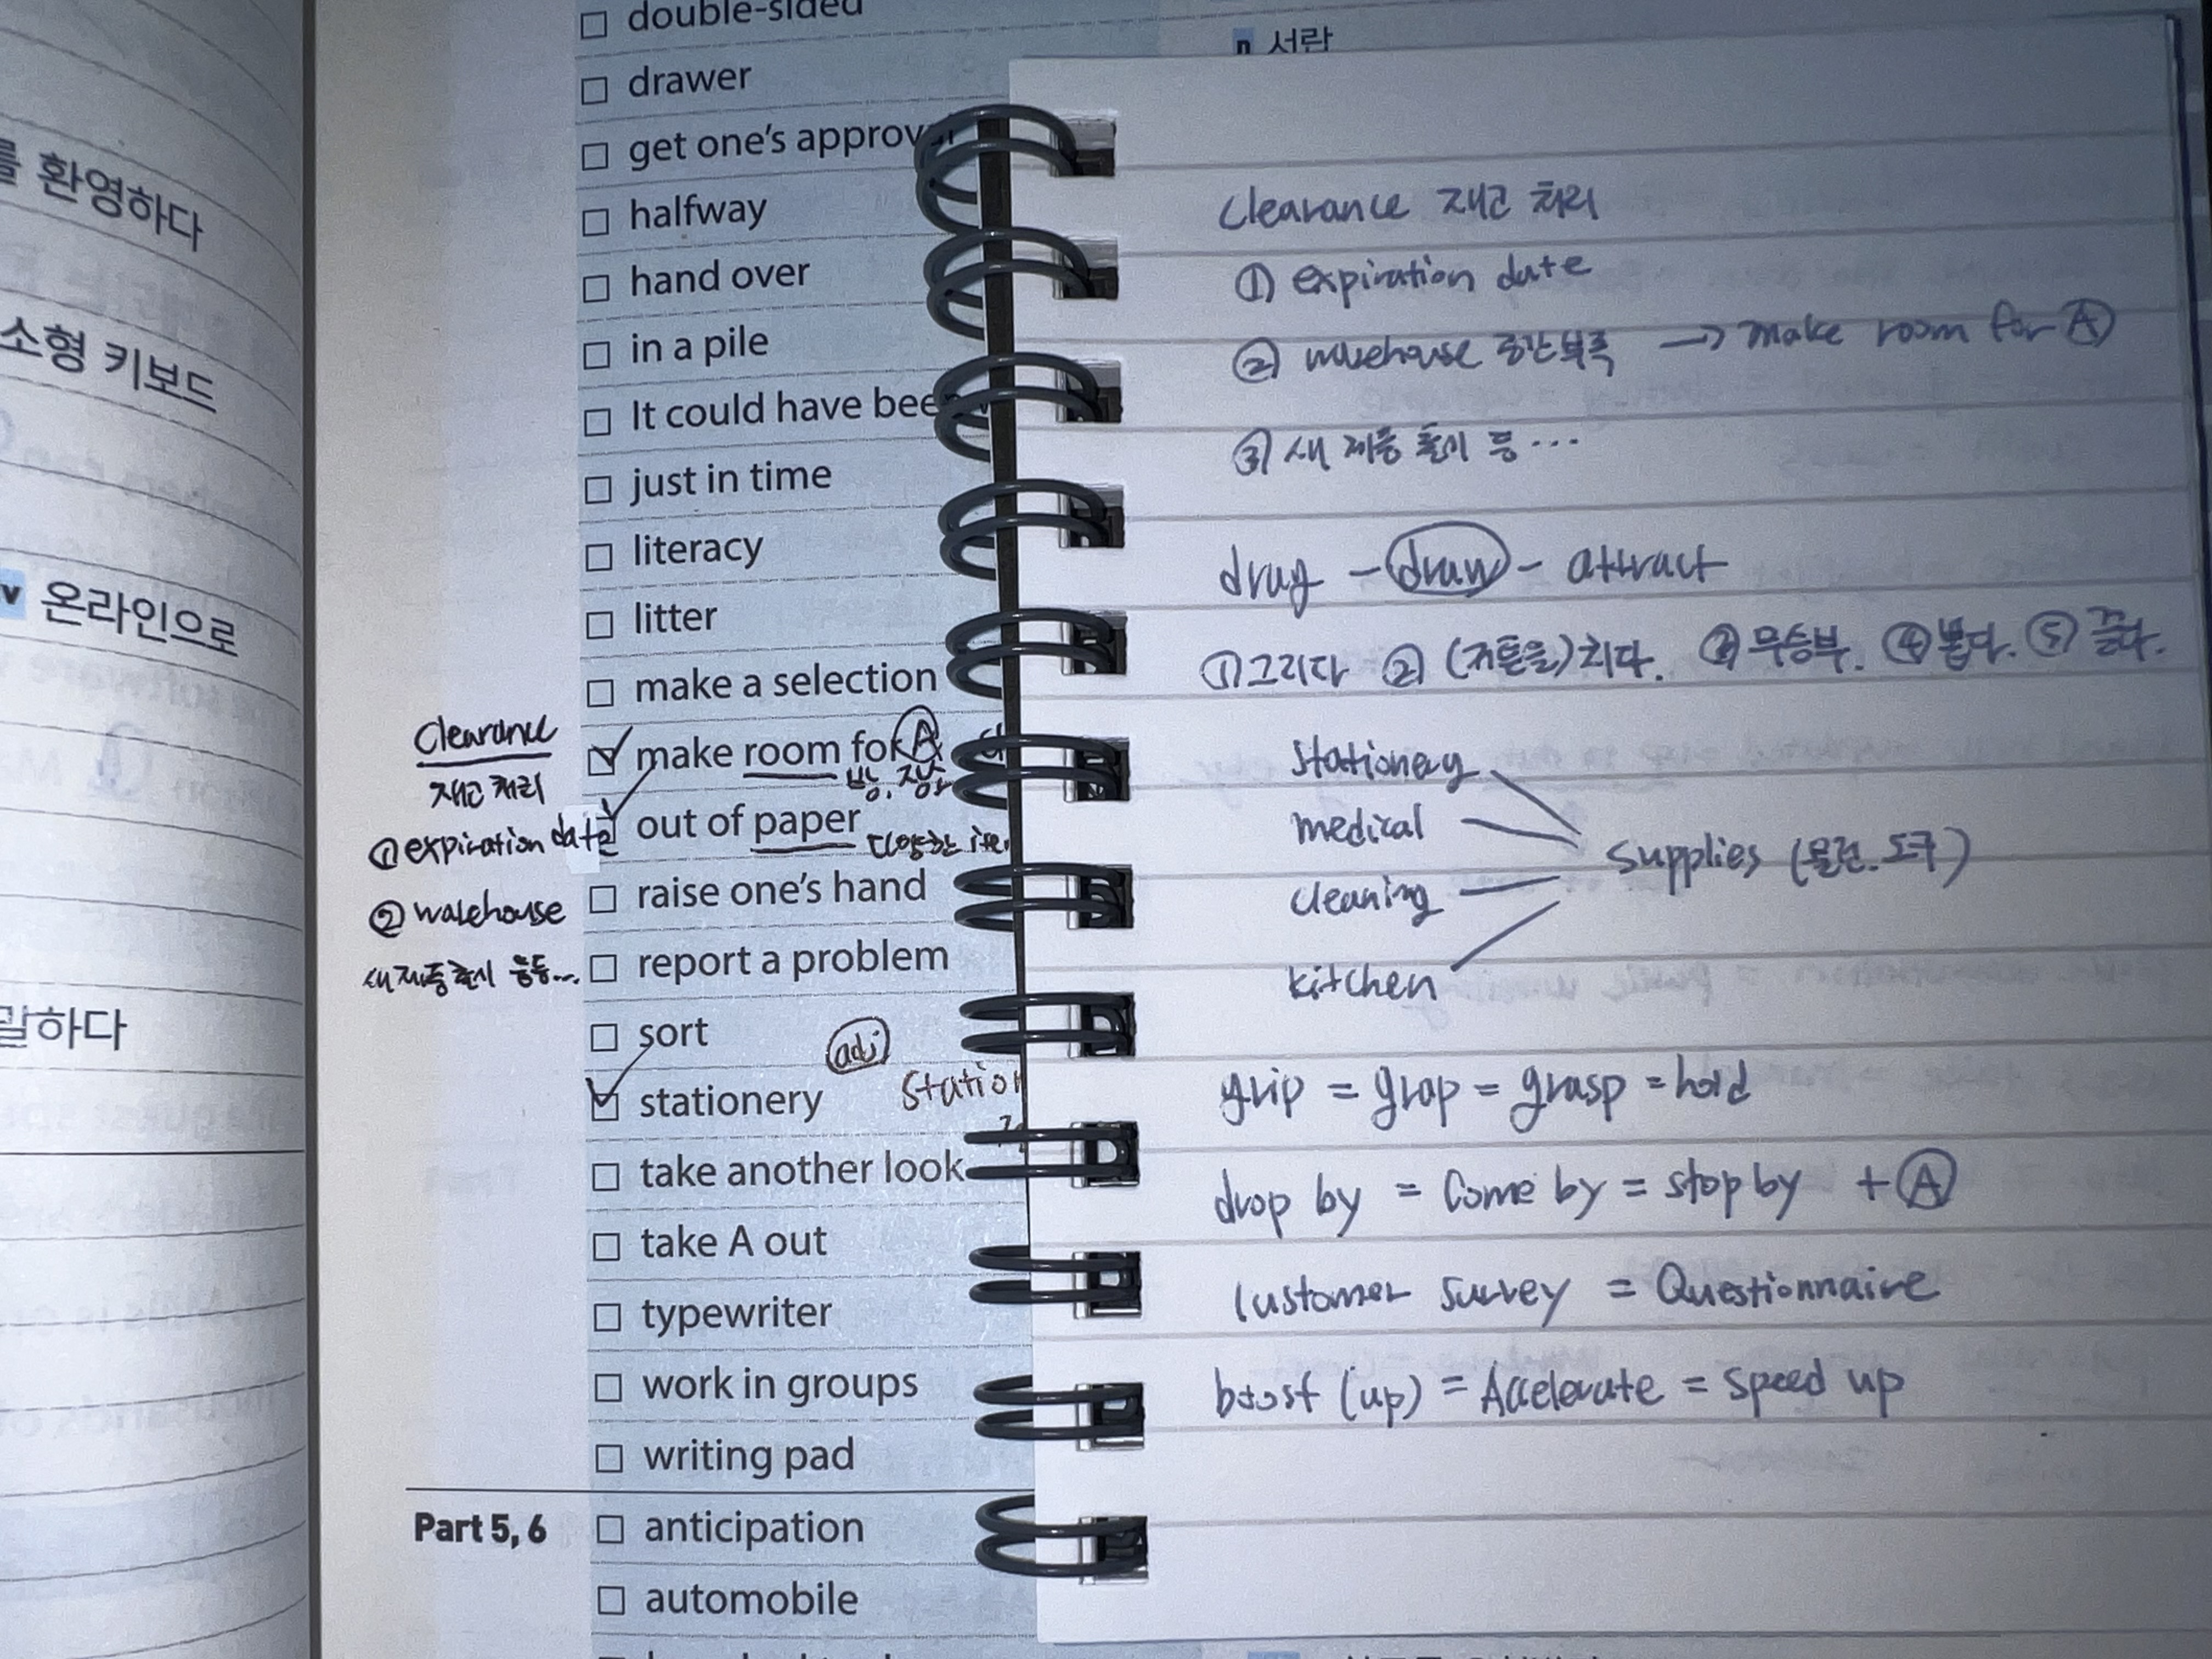 를 환영하다
소형 키보드
v 온라인으로
말하다
double-sided
n 서랍
drawer
get one's approval
halfway
hand over
in a pile
It could have been
just in time
literacy
litter
make a selection
make room for A
방, 장소
out of paper
다양한
raise one's hand
report a problem
sort
adj
stationery
take another look
take A out
typewriter
work in groups
writing pad
Part 5, 6
anticipation
automobile
Clearance
재고 처리
① expiration date
② warehouse
새 제품 출시 등등...
Clearance 재고 처리
① expiration date
② warehouse 공간 부족 → make room for A
③ 새 제품 출시 등...
drag - draw - attract
① 그리다 ② (커튼을) 치다. ③ 무승부. ④ 뽑다. ⑤ 끌다.
stationery
medical
cleaning
kitchen
supplies (물건.도구)
grip = grap = grasp = hold
drop by = Come by = stop by + A
customer survey = Questionnaire
boost (up) = Accelerate = speed up